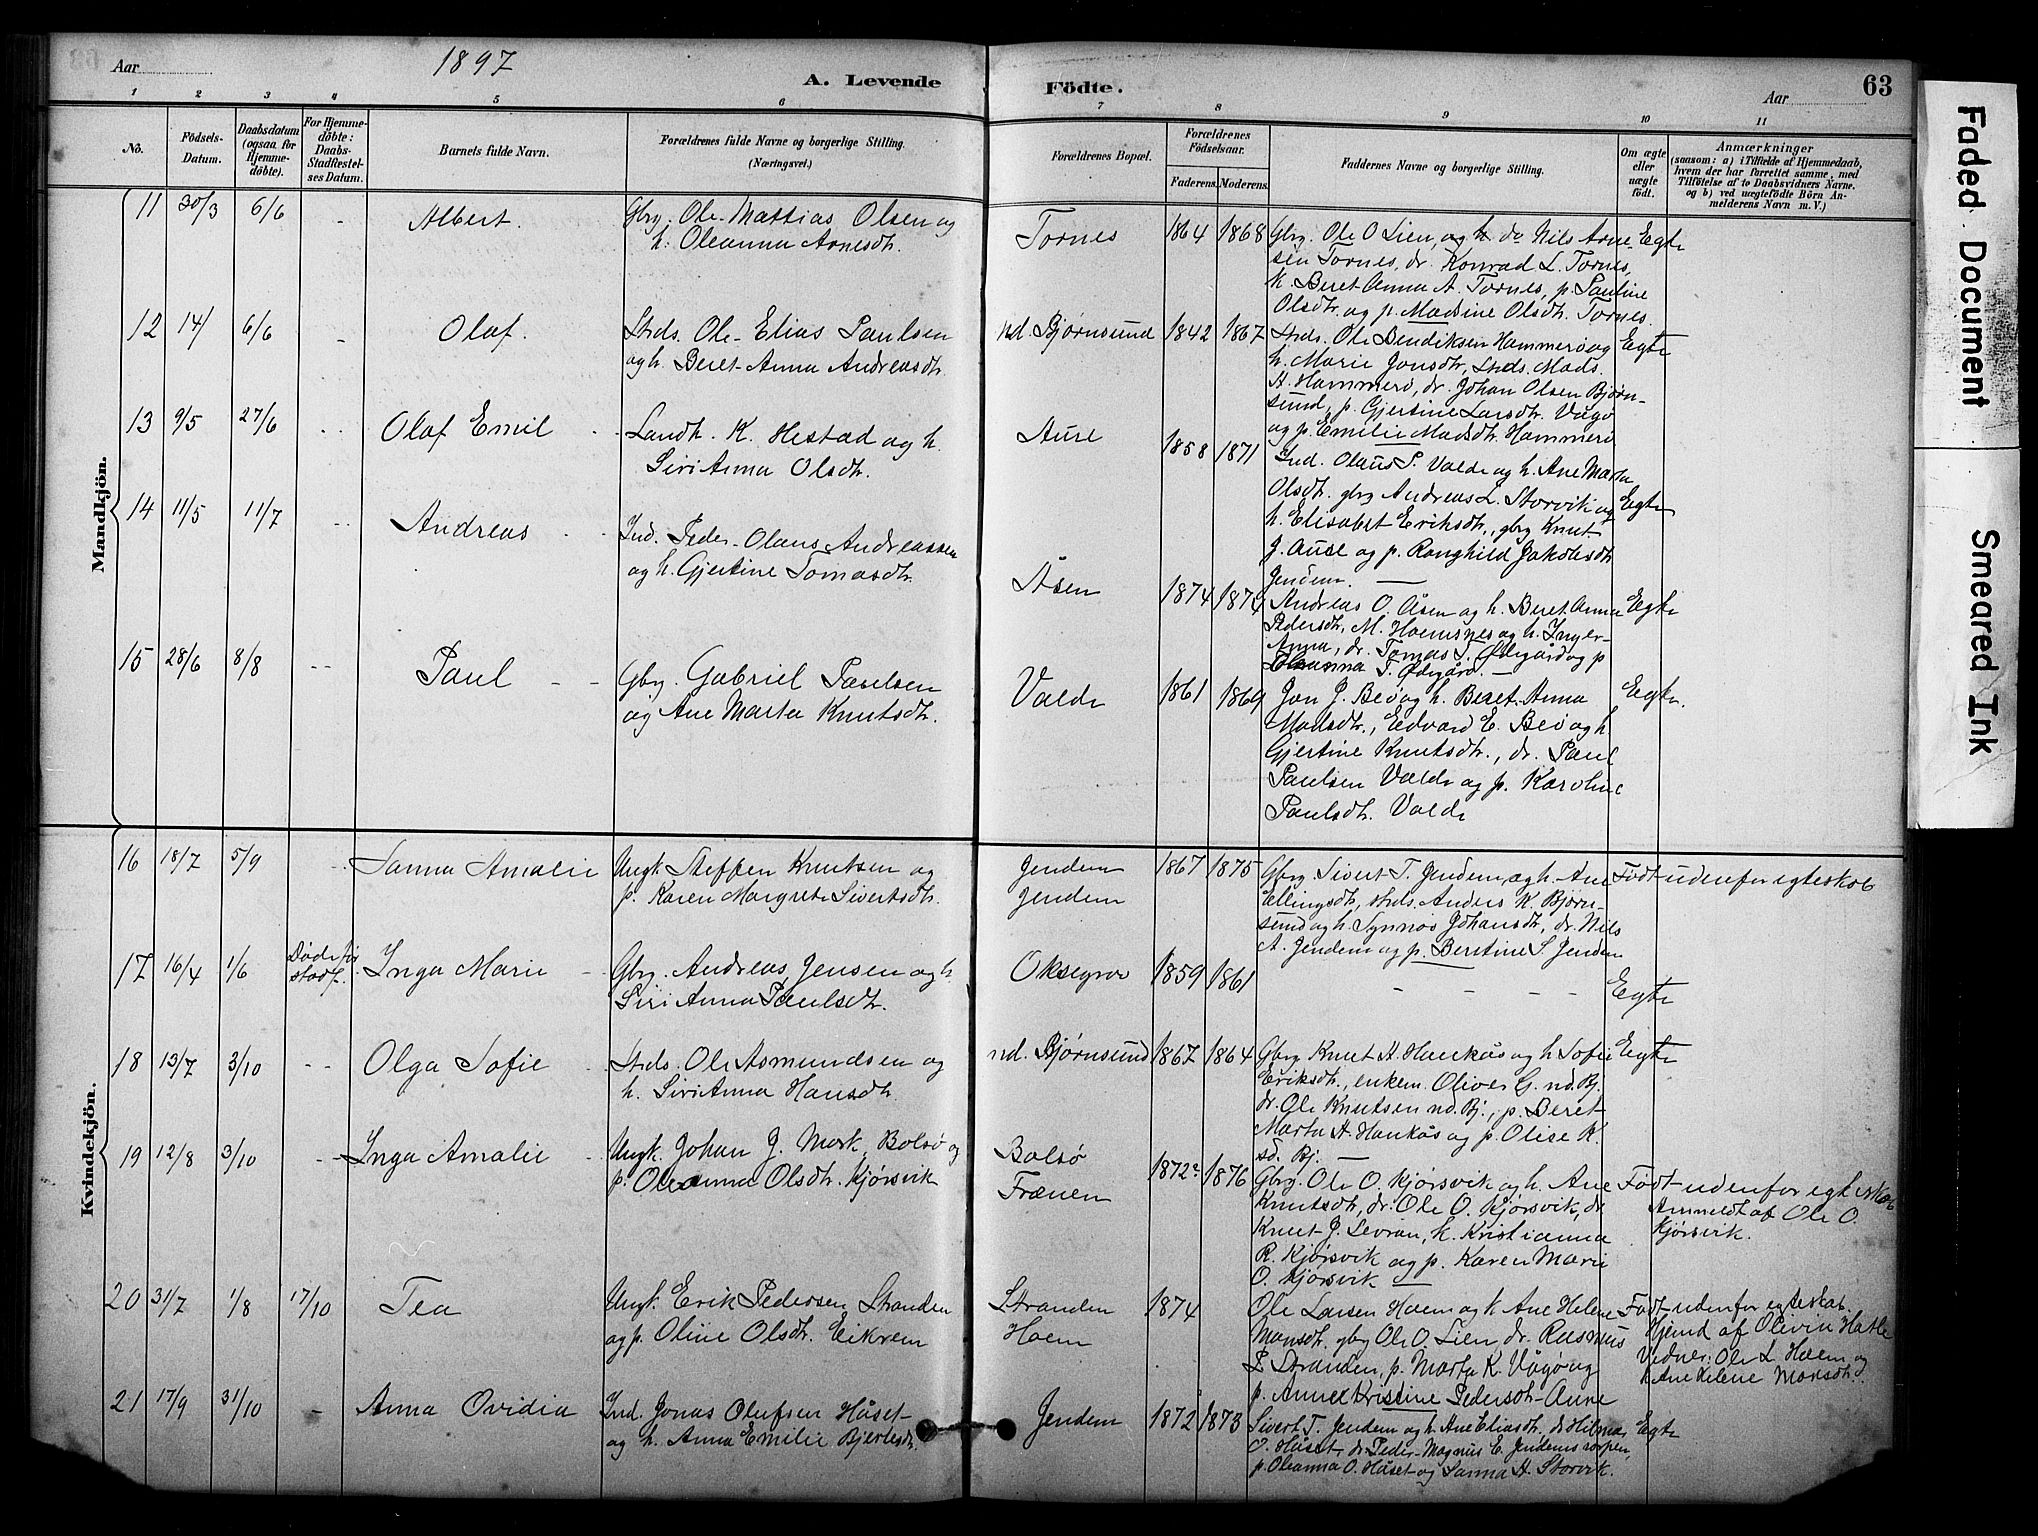 Aar
1897
A. Levende
Födte.
Aar
63
1 2 3 4 5 6 7 8 9 10 11
No.
Födsels-Datum.
Daabsdatum (ogsaa for Hjemme-döbte).
For Hjemme-döbte: Daabs-Stadfæstel-ses Datum.
Barnets fulde Navn.
Forældrenes fulde Navne og borgerlige Stilling. (Næringsvei.)
Forældrenes Bopæl.
Forældrenes Födselsaar.
Faderens. Moderens.
Faddernes Navne og borgerlige Stilling.
Om ægte eller uægte födt.
Anmærkninger
(saasom: a) i Tilfælde af Hjemmedaab, hvem der har forrettet samme, med Tilföielse af to Daabsvidners Navne, og b) ved uægtefödte Börn Anmelderens Navn m. V.)
Mandkjön.
11 30/3 6/6 - Albert. Gbrg. Ole Mattias Olsen og
h. Oleanna Arnesdtr.
Tornes 1864 1868 Gbrg. Ole O Lien, og h. do Nils Arne- Egte
sen Tornes, dr. Konrad L. Tornes,
k. Beret Anna A. Tornes, p. Pauline
Olsdtr. og p. Madsine Olsdtr. Tornes.
12 14/ 6/6 - Olaf. Strds. Ole Elias Paulsen
og h. Beret Anna Andreasdtr.
nd. Bjørnsund 1842 1867 Strds. Ole Bendiksen Hammerø og Egte
h. Marie Jonsdtr, Strds. Mads
A. Hammerø, dr. Johan Olsen Bjørn-
sund, p. Gjertine Larsdtr. Vågø
og p. Emilie Madsdtr. Hammerø
13 9/5 27/6 Olaf Emil Landh. K. Hestad og h.
Siri Anna Olsdtr.
Aure 1858 1871 Ind. Olaus P. Valde og h. Ane Marta
Olsdtr. gbrg Andreas L. Storvik og Egte
h. Elisabet Eriksdtr., gbrg Knut
J. Aure og p. Ranghild Jakobsdtr
Jendem.
14 11/5 11/7 Andreas Ind. Peder Olaus Andreassen
og h. Gjertine Tomasdtr.
Åsen 1874 1874 Andreas O. Åsen og h. Beret Anna Egte
Pedersdtr, M. Hoemsnes og h. Inger-
Anna, dr. Tomas T. Ødegård og p
Oleanna T. Ødegård.
15 28/6 8/8 Paul Gbrg. Gabriel Paulsen
og Ane Marta Knutsdtr.
Valde 1861 1869 Jon J. Beø og h. Beret Anna Egte.
Madsdtr., Edvard E. Beø og h
Gjertine Knutsdtr., dr. Paul
Paulsen Valde og p. Karoline
Paulsdtr. Valde
Kvindekjön.
16 18/7 5/9 Sanna Amalie Ungk. Steffen Knutsen og
p. Karen Margrete Sivertsdtr.
Jendem
Jendem
1867 1875 Gbrg. Sivert T. Jendem og h. Ane Født udenfor egteskab
Ellingsdtr, strds. Anders K. Bjørn-
sund og h. Synnøv Johansdtr, dr. Nils
A. Jendem og p. Beretine S. Jendem
17 16/4 1/6 Døde før stadf. Inga Marie Gbrg. Andreas Jensen og h
Siri Anna Paulsdtr.
Oksegrov 1859 1861 - - - - Egte
18 13/7 3/10 Olga Sofie Strds. Ole Asmundsen og
h. Siri Anna Hansdtr.
nd. Bjørnsund 1867 1864 Gbrg Knut H. Haukås og h Sofie Egte
Eriksdtr., enkem. Oliver G. nd. Bj.
dr. Ole Knutsen nd. Bj., p. Beret
Marta H. Haukås og p. Olise K.
sd. Bj.
19 12/8 3/10 Inga Amalie Ungk. Johan J. Mork, Bolsø og
p. Oleanna Olsdtr. Kjørsvik
Bolsø
Frænen
1872 1876 Gbrg. Ole O. Kjørsvik og h. Ane Født udenfor egteskab
Knutsdtr, dr. Ole O. Kjørsvik, dr. Anmeldt af Ole O.
Knut J. Levran, k. Kristianna Kjørsvik.
R. Kjørsvik og p. Karen Marie
O. Kjørsvik
20 31/7 1/8 17/10 Tea Ungk. Erik Pedersen Stranden
og p. Oline Olsdtr. Eikrem
Stranden
Hoem
1874 Ole Larsen Hoem og h Ane Helene Født udenfor egteskab.
Monsdtr, gbrg Ole O. Lien, dr. Rasmus Hjemd af Olevin Hatle
P. Stranden, p. Marta K. Vågø og Vidner: Ole L. Hoem og
p. Anne Kristine Pedersdtr Aure h Ane Helene Monsdtr.
21 17/9 31/10 - Anna Ovidia Ind. Jonas Olufsen Håset
og h. Anna Emilie Bjertesdtr.
Jendem 1872 1873 Sivert T. Jendem og h. Ane Eliasdtr, dr Hilmar Egte
O. Håset, dr Peder Magnus E. Jendemstorpen,
p. Oleanna O. Håset og Sanna H. Storvik.
Faded Document
Smeared Ink